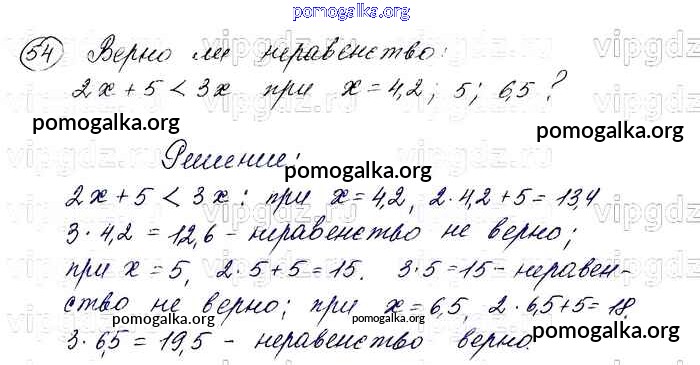 pomogalka.org
54 Верно ли неравенство:
2x + 5 < 3x при x = 4,2; 5; 6,5?
pomogalka.org pomogalka.org
Решение:
pomogalka.org
2x + 5 < 3x: при x = 4,2, 2·4,2 + 5 = 13,4
3·4,2 = 12,6 - неравенство не верно;
при x = 5, 2·5 + 5 = 15. 3·5 = 15 - неравен-
ство не верно; при x = 6,5, 2·6,5 + 5 = 18,
pomogalka.org pomogalka.org pomogalka.org
3·6,5 = 19,5 - неравенство верно.